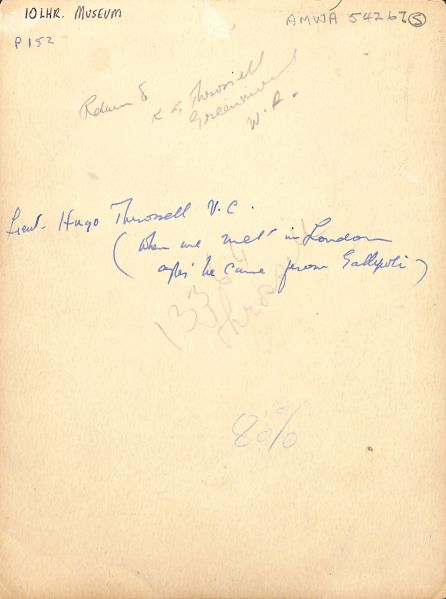 10LHR. MUSEUM
AMWA 54267 5
P152
Return to
K S Throssell
Greenmount
W.A.
Lieut. Hugo Throssell V.C.
(When we met in London
after he came from Gallipoli)
1336
Throssell
80%